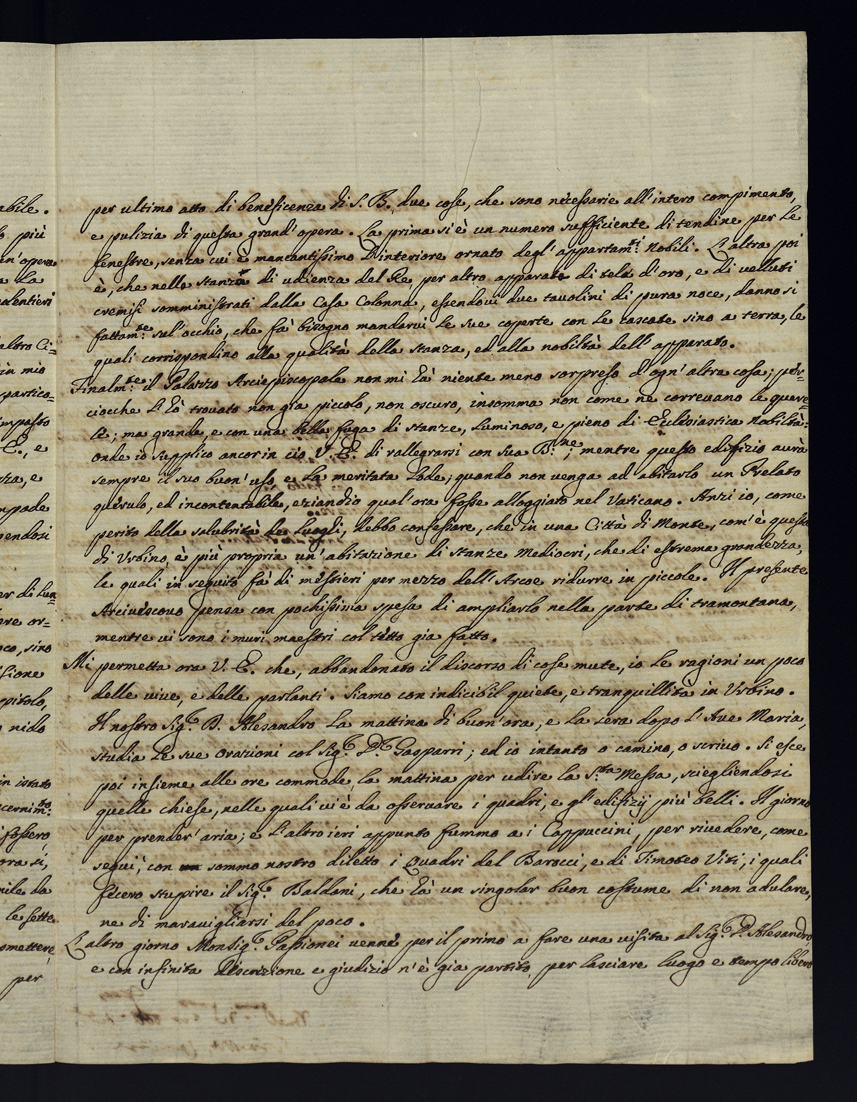 per ultimo atto di beneficenza di S. B. due cose, che sono necessarie all'intero compimento,
e pulizia di questa grand'opera. La prima si è un numero sufficiente di tendine per le
fenestre, senza cui è mancantissimo l'interiore ornato degl'appartam.ti Nobili. L'altra poi
è, che nella Stanza di udienza del Re, per altro apparata di tela d'oro, e di velluti
cremisi somministrati dalla Casa Colonna, essendovi due tavolini di pura noce, danno sì
fattam.te sul'occhio, che fà bisogno mandarvi le sue coperte con le cascate sino a terra, le
quali corrispondino alla qualità della stanza, ed alla nobiltà dell'apparato.
Finalm.te il Palazzo Arciepiscopale non mi hà niente meno sorpreso d'ogn'altra cosa; per=
ciocche l'hò trovato non gia piccolo, non oscuro, insomma non come ne correvano le quere=
le; ma grande, e con una bella fuga di stanze, luminoso, e pieno di Eclesiastica Nobiltà:
onde io supplico ancor in ciò V. E. di rallegrarsi con Sua B.ne; mentre questo edifizio avrà
sempre il suo buon'uso, e la meritata Lode; quando non venga ad abitarlo un Prelato
querulo, ed incontentabile, eziandio qual'ora fosse alloggiato nel Vaticano. Anzi io, come
perito della salubrità de Luoghi, debbo confessare, che in una Città di Monte, com'è questa
di Urbino, è più propria un'abitazione di stanze Mediocri, che di estrema grandezza,
le quali in seguito fà di mestieri per mezzo dell'Arcoe ridurre in piccole. Il presente
Arcivescovo pensa con pochissima spesa di ampliarlo nella parte di tramontana,
mentre vi sono i muri maestri col tetto gia fatto.
Mi permetta ora V. E. che, abbandonato il discorso di cose mute, io le ragioni un poco
delle vive, e delle parlanti. Siamo con indicibil quiete, e tranquillità in Urbino.
Il nostro Sig.r D. Alesandro la mattina di buon'ora, e la sera dopo l'Ave Maria,
studia le sue orazioni col Sig.r D.r Gasparri; ed io intanto o camino, o scrivo. Si esce
poi insieme alle ore commode la mattina per udire la S.ta Messa, scegliendosi
quelle chiese, nelle quali vi è da osservare i quadri, e gl'edifizij più belli. Il giorno
per prender'aria; e l'altro ieri appunto fummo a i Cappuccini, per rivedere, come
seguì, con sommo nostro diletto i Quadri del Barocci, e di Timoteo Viti; i quali
fecero stupire il Sig.r Baldani, che hà un singolar buon costume di non adulare,
ne di maravigliarsi del poco.
L'altro giorno Monsig.r Passionei venne per il primo a fare una visita al Sig.r D. Alesandro,
e con infinita discrezione e giudizio n'è gia partito, per lasciare luogo e tempo libero